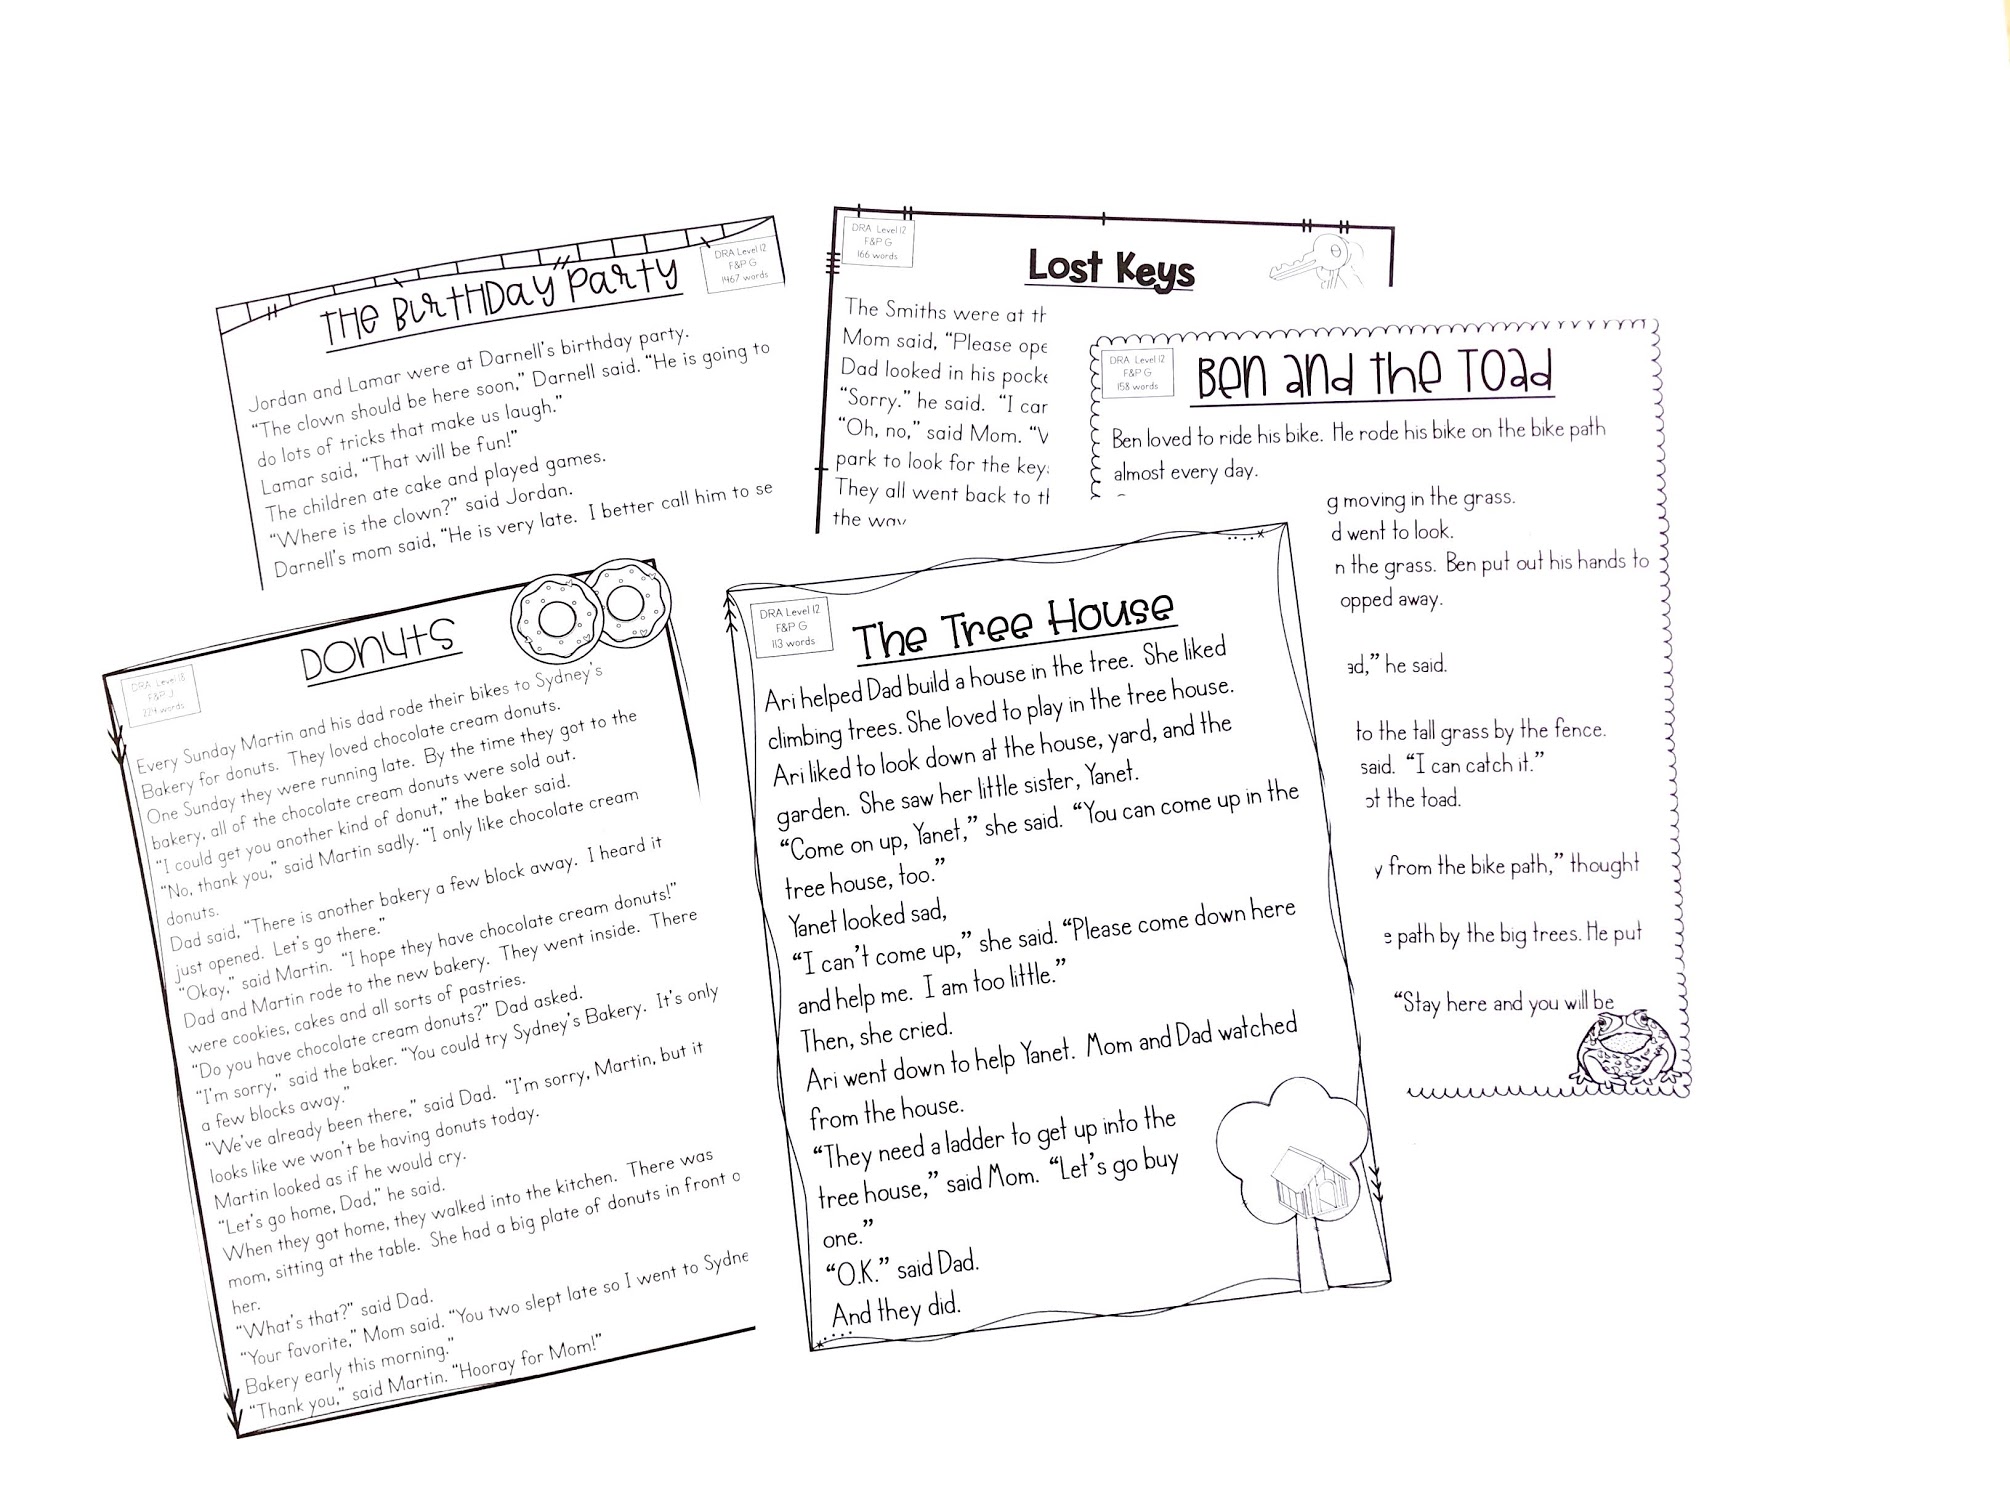 DRA Level 12
F&P G
1467 words
THE BIRTHDAY PARTY
Jordan and Lamar were at Darnell's birthday party.
"The clown should be here soon," Darnell said. "He is going to
do lots of tricks that make us laugh."
Lamar said, "That will be fun!"
The children ate cake and played games.
"Where is the clown?" said Jordan.
Darnell's mom said, "He is very late. I better call him to se
DRA Level 12
F&P G
166 words
Lost Keys
The Smiths were at th
Mom said, "Please ope
Dad looked in his pocke
"Sorry." he said. "I car
"Oh, no," said Mom. "V
park to look for the key
They all went back to th
the way
DRA Level 12
F&P G
158 words
Ben and the Toad
Ben loved to ride his bike. He rode his bike on the bike path
almost every day.
g moving in the grass.
d went to look.
n the grass. Ben put out his hands to
opped away.
ad," he said.
to the tall grass by the fence.
said. "I can catch it."
ot the toad.
y from the bike path," thought
e path by the big trees. He put
"Stay here and you will be
DRA Level 18
F&P J
224 words
DONUTS
Every Sunday Martin and his dad rode their bikes to Sydney's
Bakery for donuts. They loved chocolate cream donuts.
One Sunday they were running late. By the time they got to the
bakery, all of the chocolate cream donuts were sold out.
"I could get you another kind of donut," the baker said.
"No, thank you," said Martin sadly. "I only like chocolate cream
donuts.
Dad said, "There is another bakery a few block away. I heard it
just opened. Let's go there."
"Okay," said Martin. "I hope they have chocolate cream donuts!"
Dad and Martin rode to the new bakery. They went inside. There
were cookies, cakes and all sorts of pastries.
"Do you have chocolate cream donuts?" Dad asked.
"I'm sorry," said the baker. "You could try Sydney's Bakery. It's only
a few blocks away."
"We've already been there," said Dad. "I'm sorry, Martin, but it
looks like we won't be having donuts today.
Martin looked as if he would cry.
"Let's go home, Dad," he said.
When they got home, they walked into the kitchen. There was
mom, sitting at the table. She had a big plate of donuts in front o
her.
"What's that?" said Dad.
"Your favorite," Mom said. "You two slept late so I went to Sydne
Bakery early this morning."
"Thank you," said Martin. "Hooray for Mom!"
DRA Level 12
F&P G
113 words
The Tree House
Ari helped Dad build a house in the tree. She liked
climbing trees. She loved to play in the tree house.
Ari liked to look down at the house, yard, and the
garden. She saw her little sister, Yanet.
"Come on up, Yanet," she said. "You can come up in the
tree house, too."
Yanet looked sad,
"I can't come up," she said. "Please come down here
and help me. I am too little."
Then, she cried.
Ari went down to help Yanet. Mom and Dad watched
from the house.
"They need a ladder to get up into the
tree house," said Mom. "Let's go buy
one."
"O.K." said Dad.
And they did.